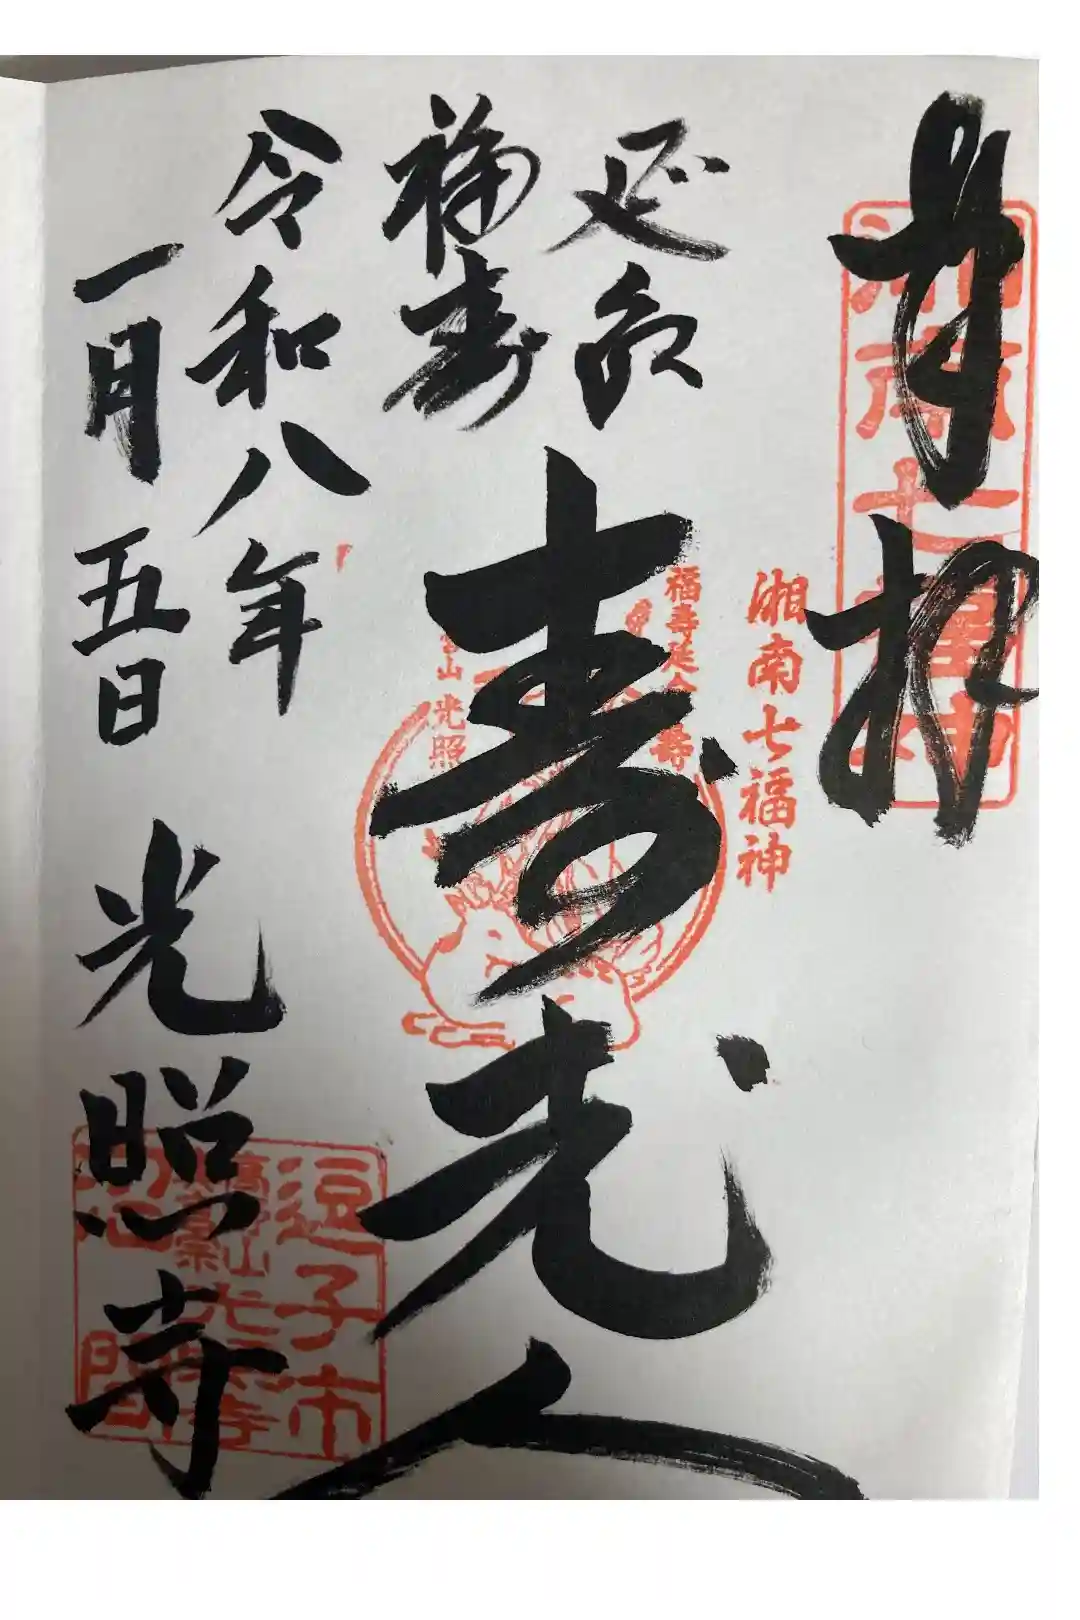 奉拝
湘南七福神
湘南七福神
延命
福寿
福寿延命
寿老人
山光照
令和八年
一月五日
光照寺
逗子市
光照寺
沼間